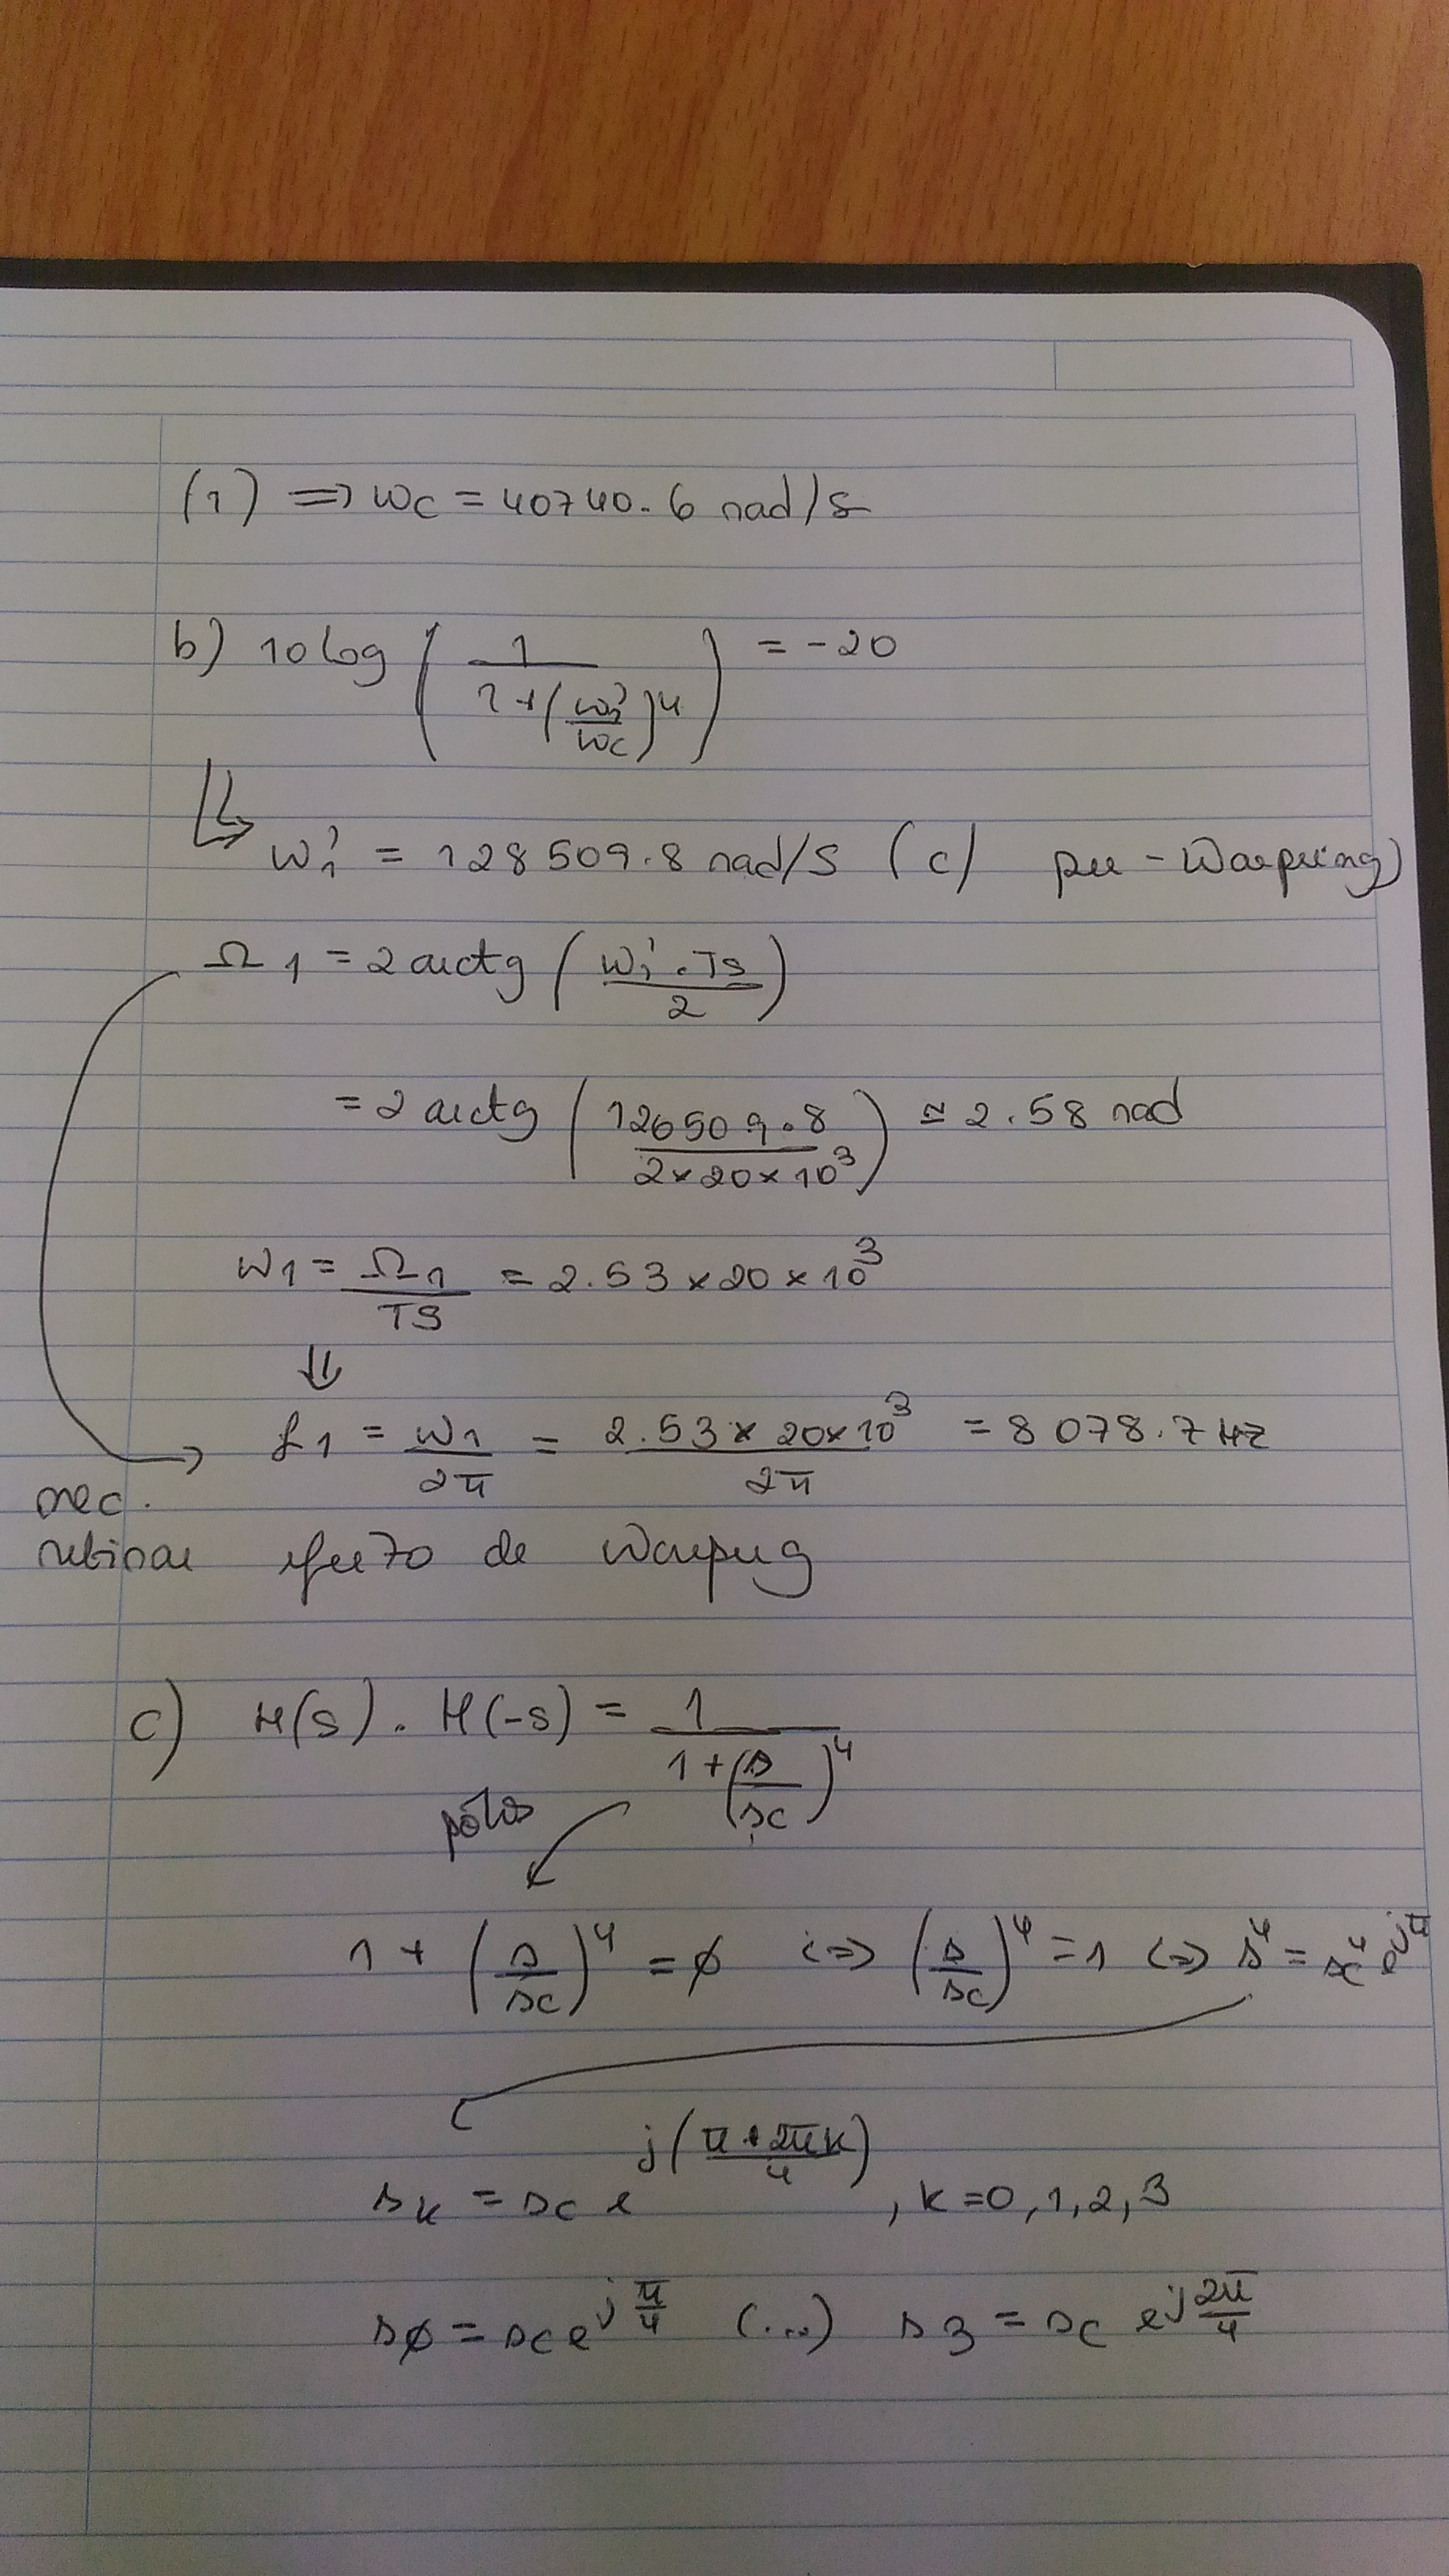 (1) => wc = 40740.6 rad/s
b) 10 log ( 1 / (1 + (w1' / wc)^4) ) = -20
w1' = 128509.8 rad/s (c/ pre-Warping)
Ω1 = 2 arctg ( w1' . Ts / 2 )
= 2 arctg ( 126509.8 / (2 × 20 × 10^3) ) ≅ 2.58 rad
w1 = Ω1 / TS = 2.53 × 20 × 10^3
⇓
f1 = w1 / 2π = 2.53 × 20 × 10^3 / 2π = 8078.7 Hz
nec.
retirar efeito de Warping
c) H(s) . H(-s) = 1 / (1 + (s / sc)^4)
pólos
1 + (s / sc)^4 = ø <=> (s / sc)^4 = 1 <=> s^4 = sc^4 e^jπ
sk = sc e^j((π + 2πk) / 4) , k = 0, 1, 2, 3
sø = sc e^j π/4 (...) s3 = sc e^j 2π/4